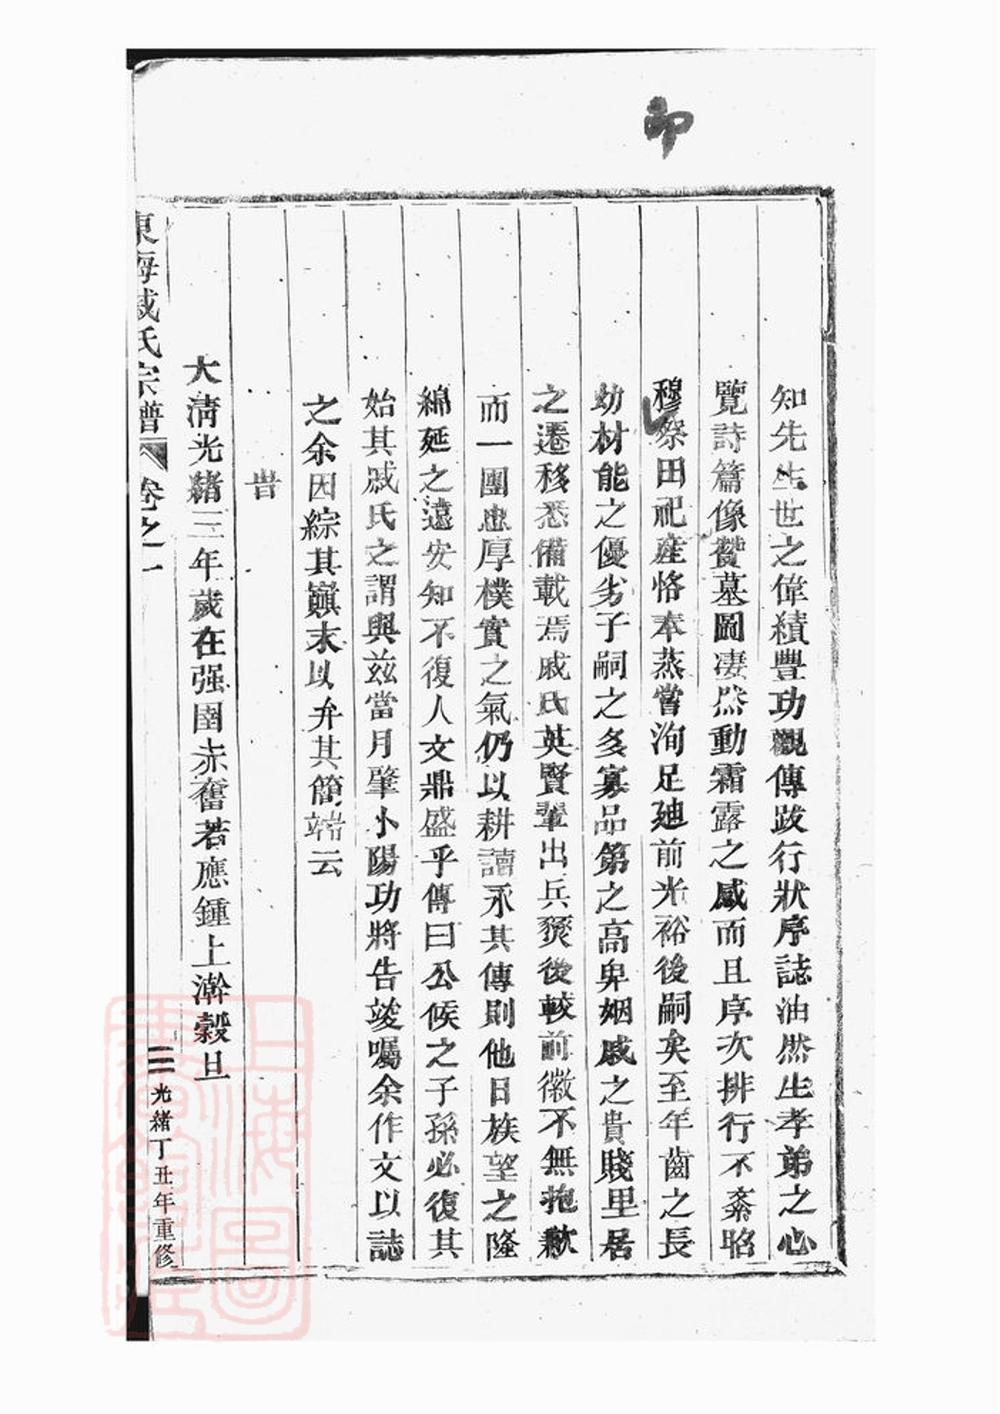 知先生世之偉績豐功觀傳跋行狀序誌油然生孝弟之心
覽詩篇像贊墓圖淒然動霜露之感而且序次排行不紊昭
穆祭田祀產恪奉蒸嘗洵足廸前光裕後嗣矣至年齒之長
幼材能之優劣子嗣之多寡品第之高卑姻戚之貴賤里居
之遷移悉備載焉戚氏英賢輩出兵燹後較前徽不無抱歉
而一團忠厚樸實之氣仍以耕讀永其傳則他日族望之隆
綿延之遠安知不復人文鼎盛乎傳曰公候之子孫必復其
始其戚氏之謂與兹當月肇小陽功將告竣囑余作文以誌
之余因綜其巔末以弁其簡端云
旹
大清光緒三年歲在强圉赤奮若應鍾上澣穀旦
東海戚氏宗譜 卷之一 三 光緒丁丑年重修
上海圖書館藏